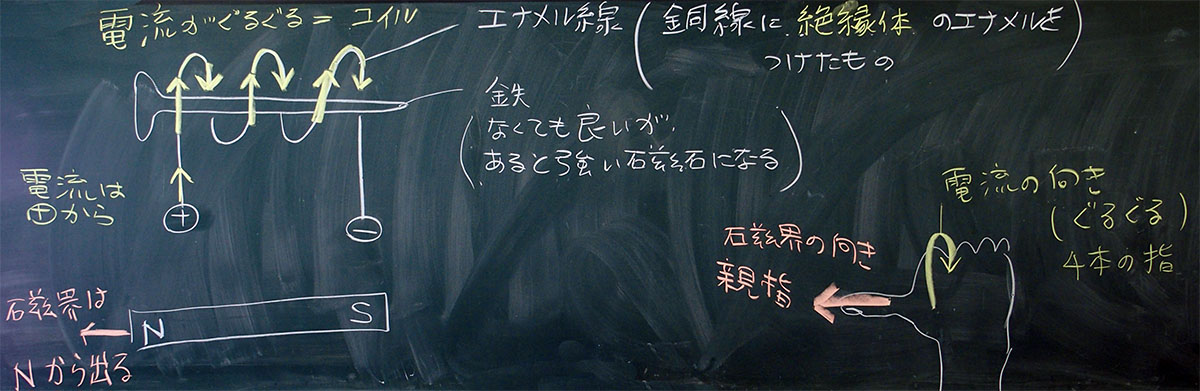 電流がぐるぐる = コイル
エナメル線 (銅線に絶縁体のエナメルを
つけたもの)
鉄
(なくても良いが
あると強い磁石になる)
電流は
⊕から
+
−
磁界は
Nから出る
N S
電流の向き
(ぐるぐる)
4本の指
磁界の向き
親指